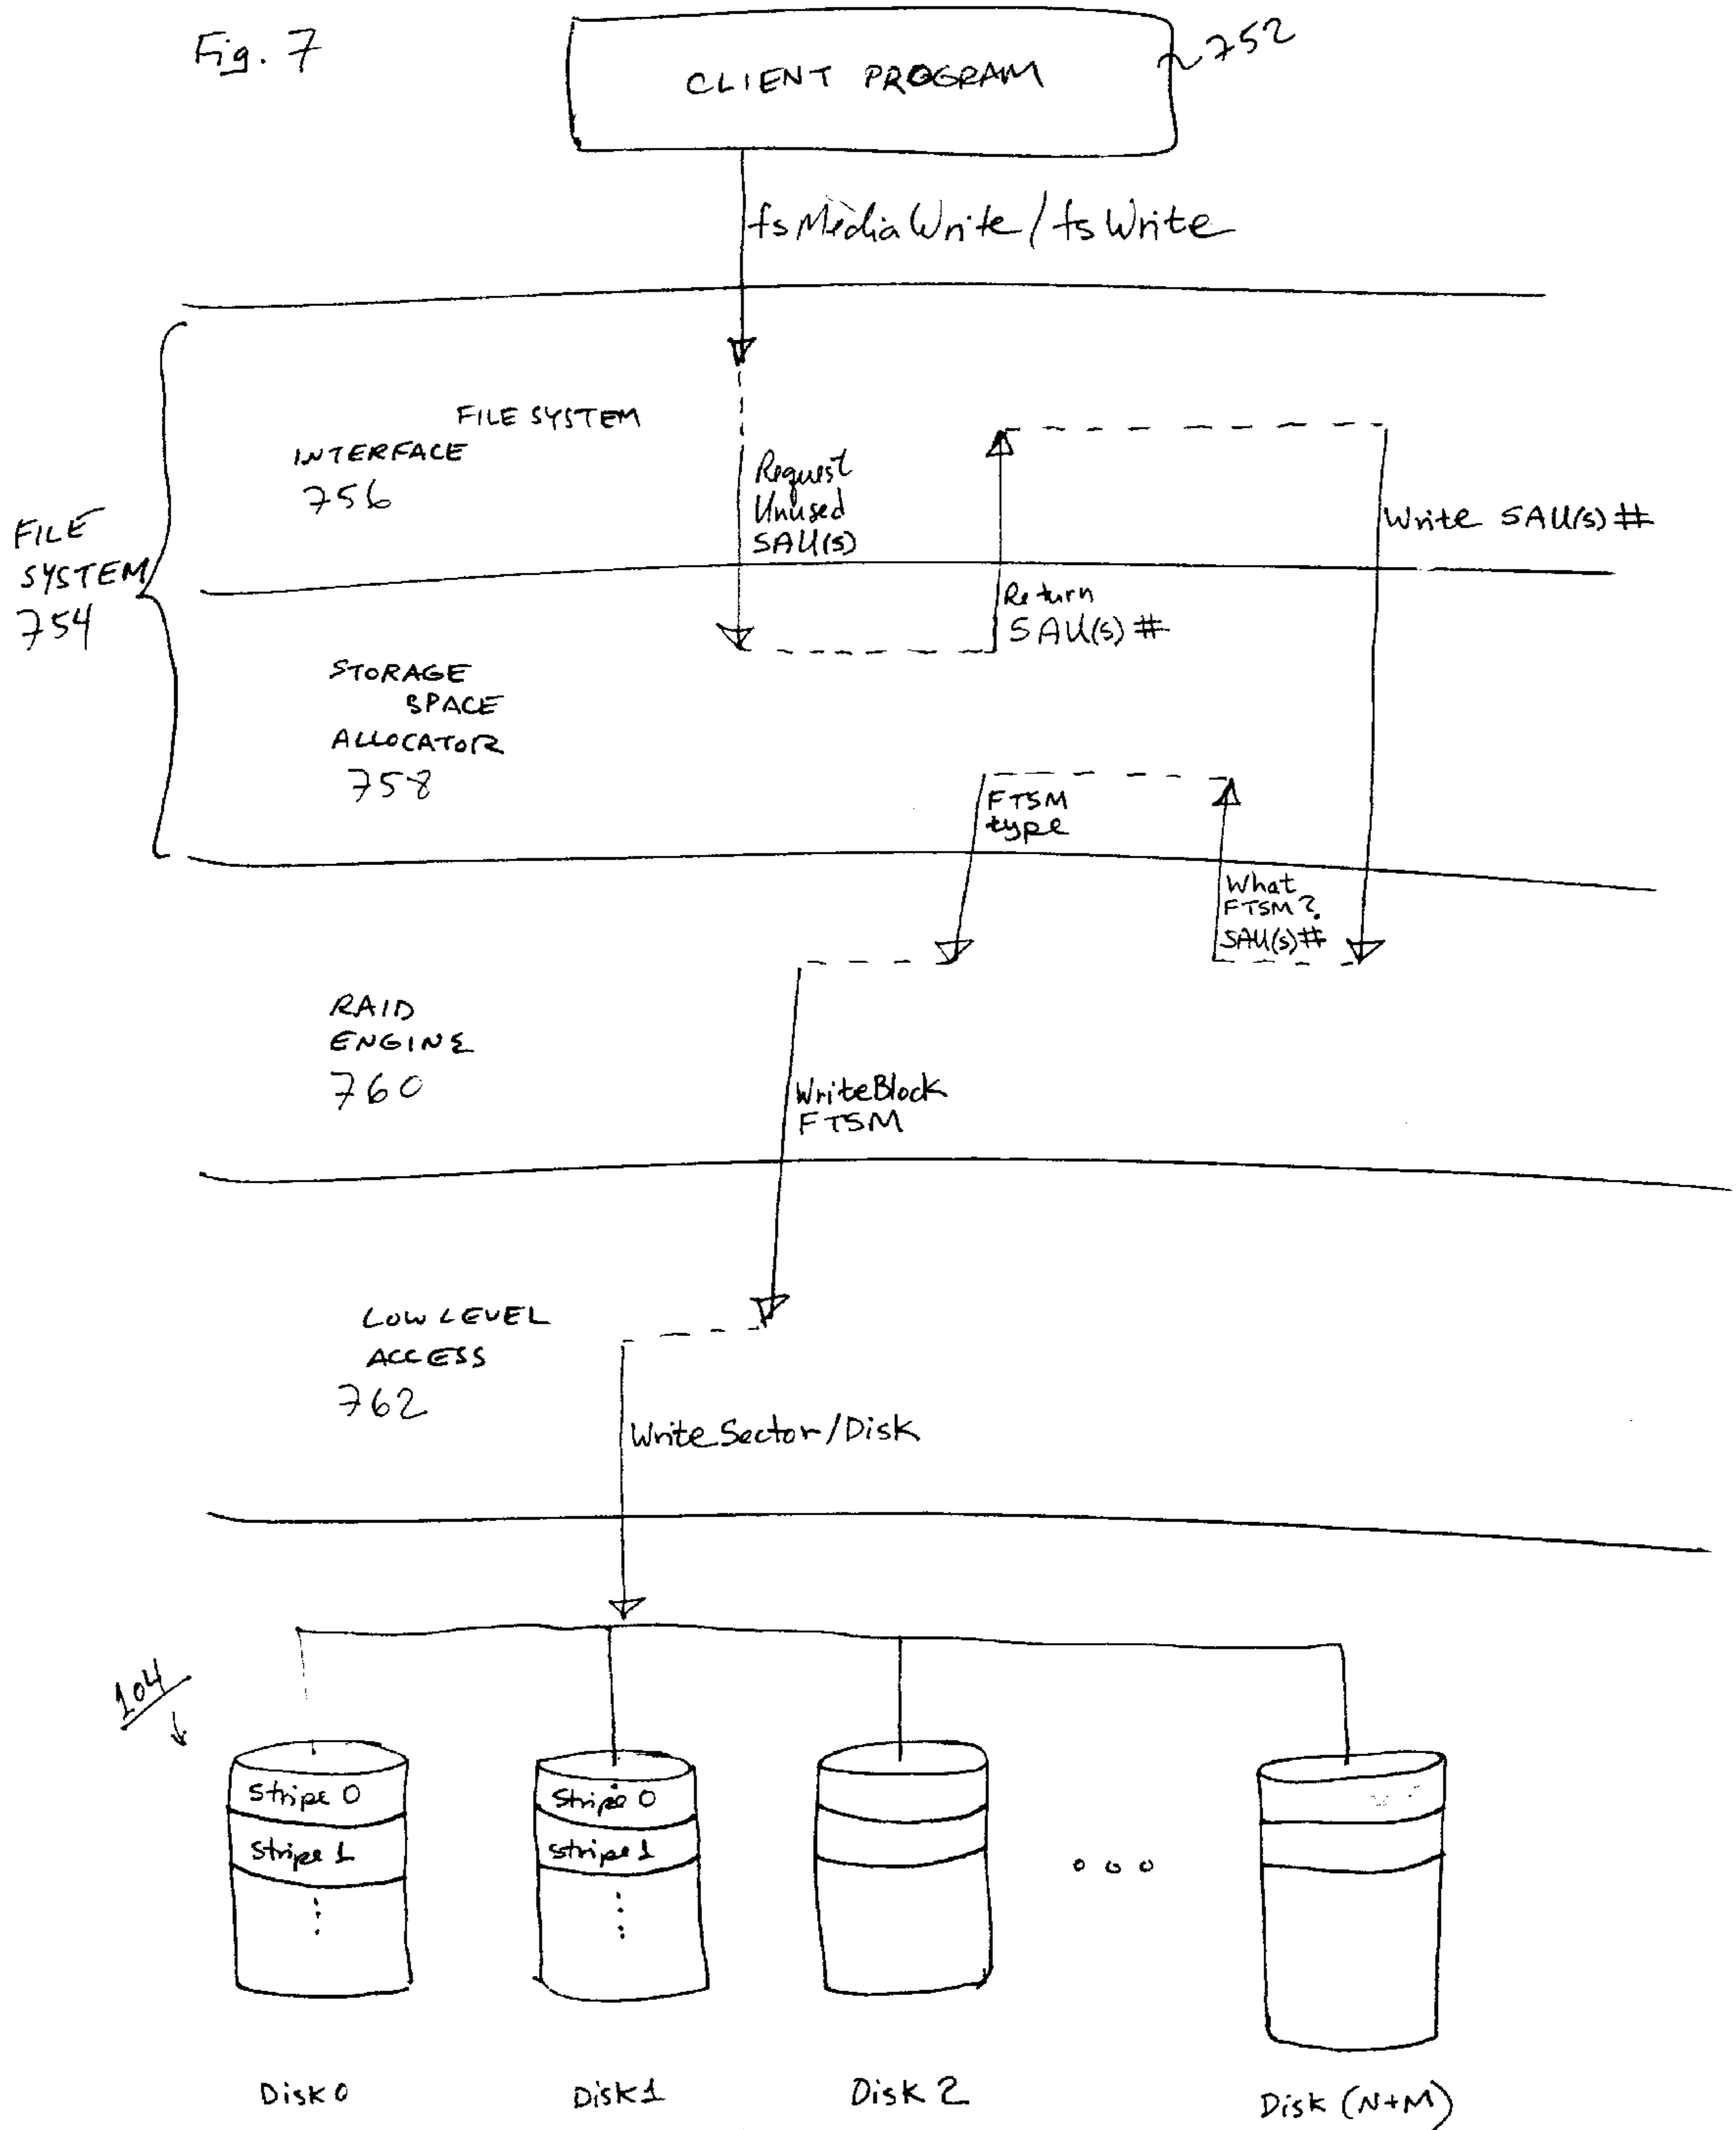 Fig. 7
CLIENT PROGRAM
752
fsMediaWrite/fsWrite
FILE SYSTEM
INTERFACE
756
Request
Unused
SAU(s)
Write SAU(s)#
FILE
SYSTEM
754
Return
SAU(s)#
STORAGE
SPACE
ALLOCATOR
758
FTSM
type
What
FTSM?
SAU(s)#
RAID
ENGINE
760
WriteBlock
FTSM
LOW LEVEL
ACCESS
762
WriteSector/Disk
104
Stripe 0
Stripe 0
Stripe 1
Stripe 1
Disk 0
Disk 1
Disk 2
Disk (N+M)